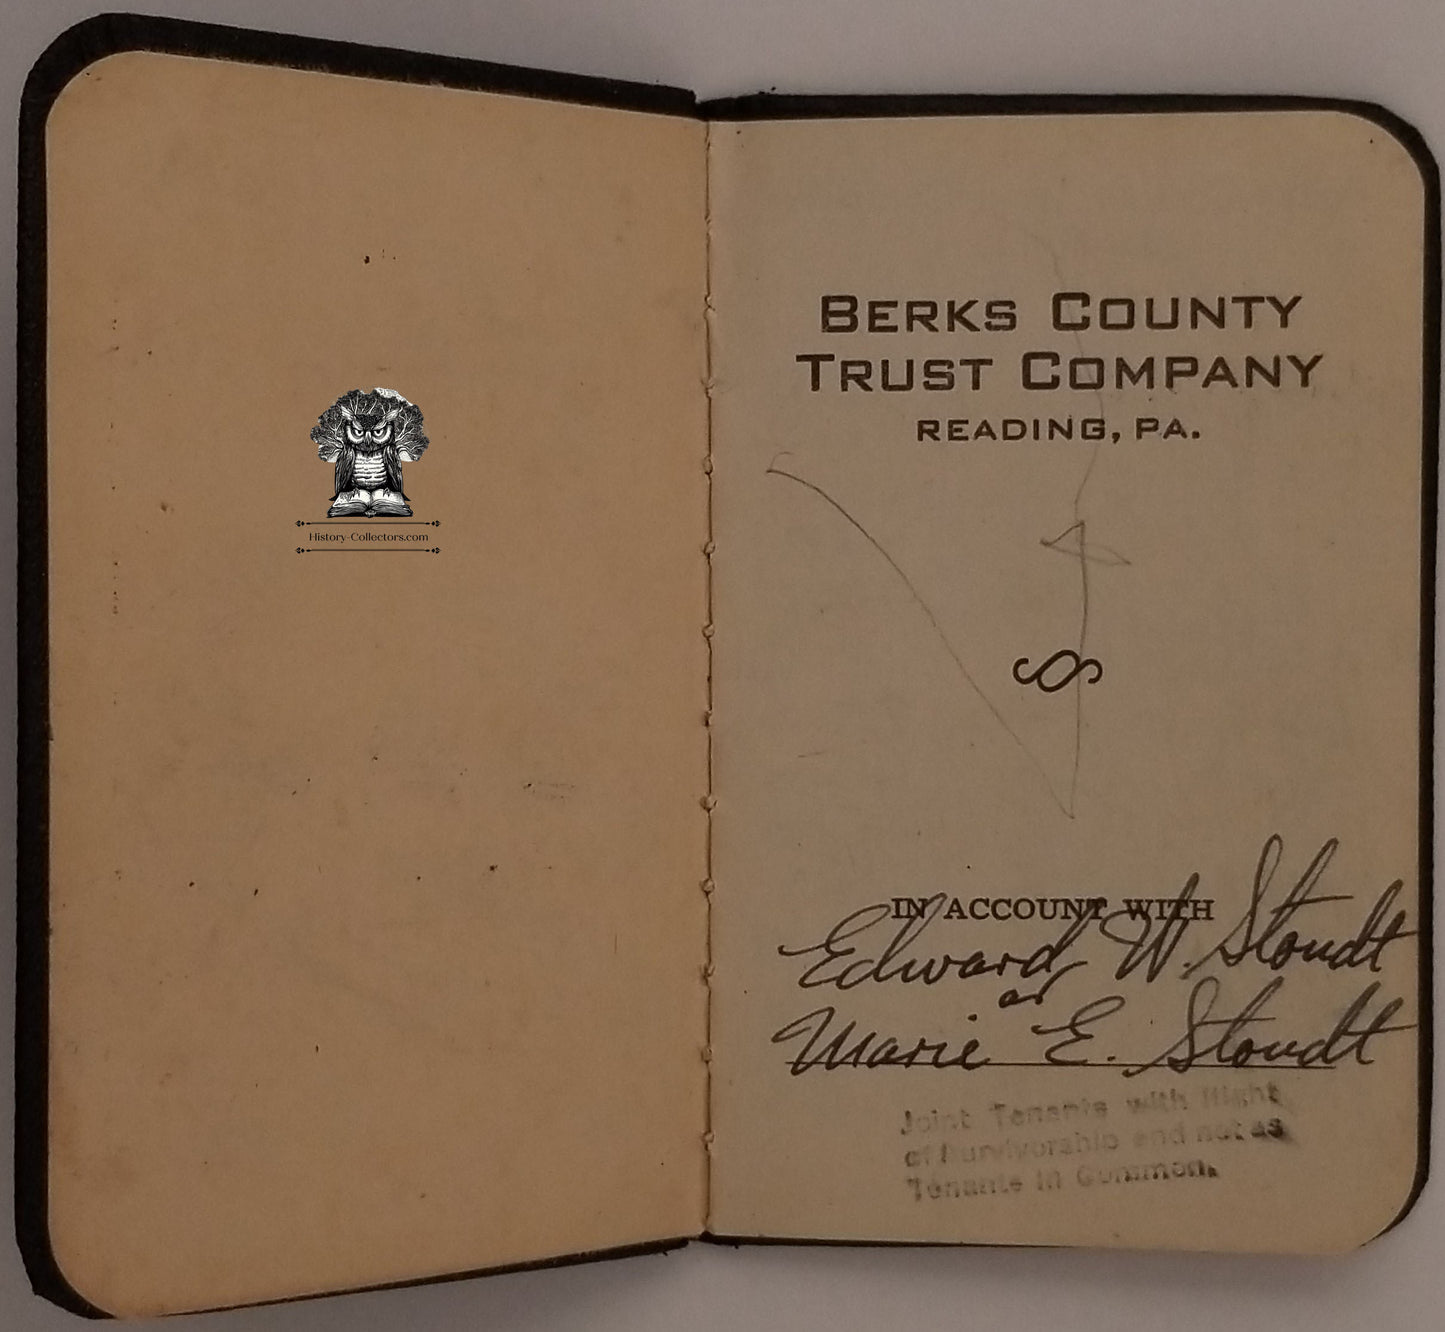 History-Collectors.com
BERKS COUNTY
TRUST COMPANY
READING, PA.
IN ACCOUNT WITH
Edward W. Stoudt
or
Marie E. Stoudt
Joint Tenants with Right
of Survivorship and not as
Tenants in Common.